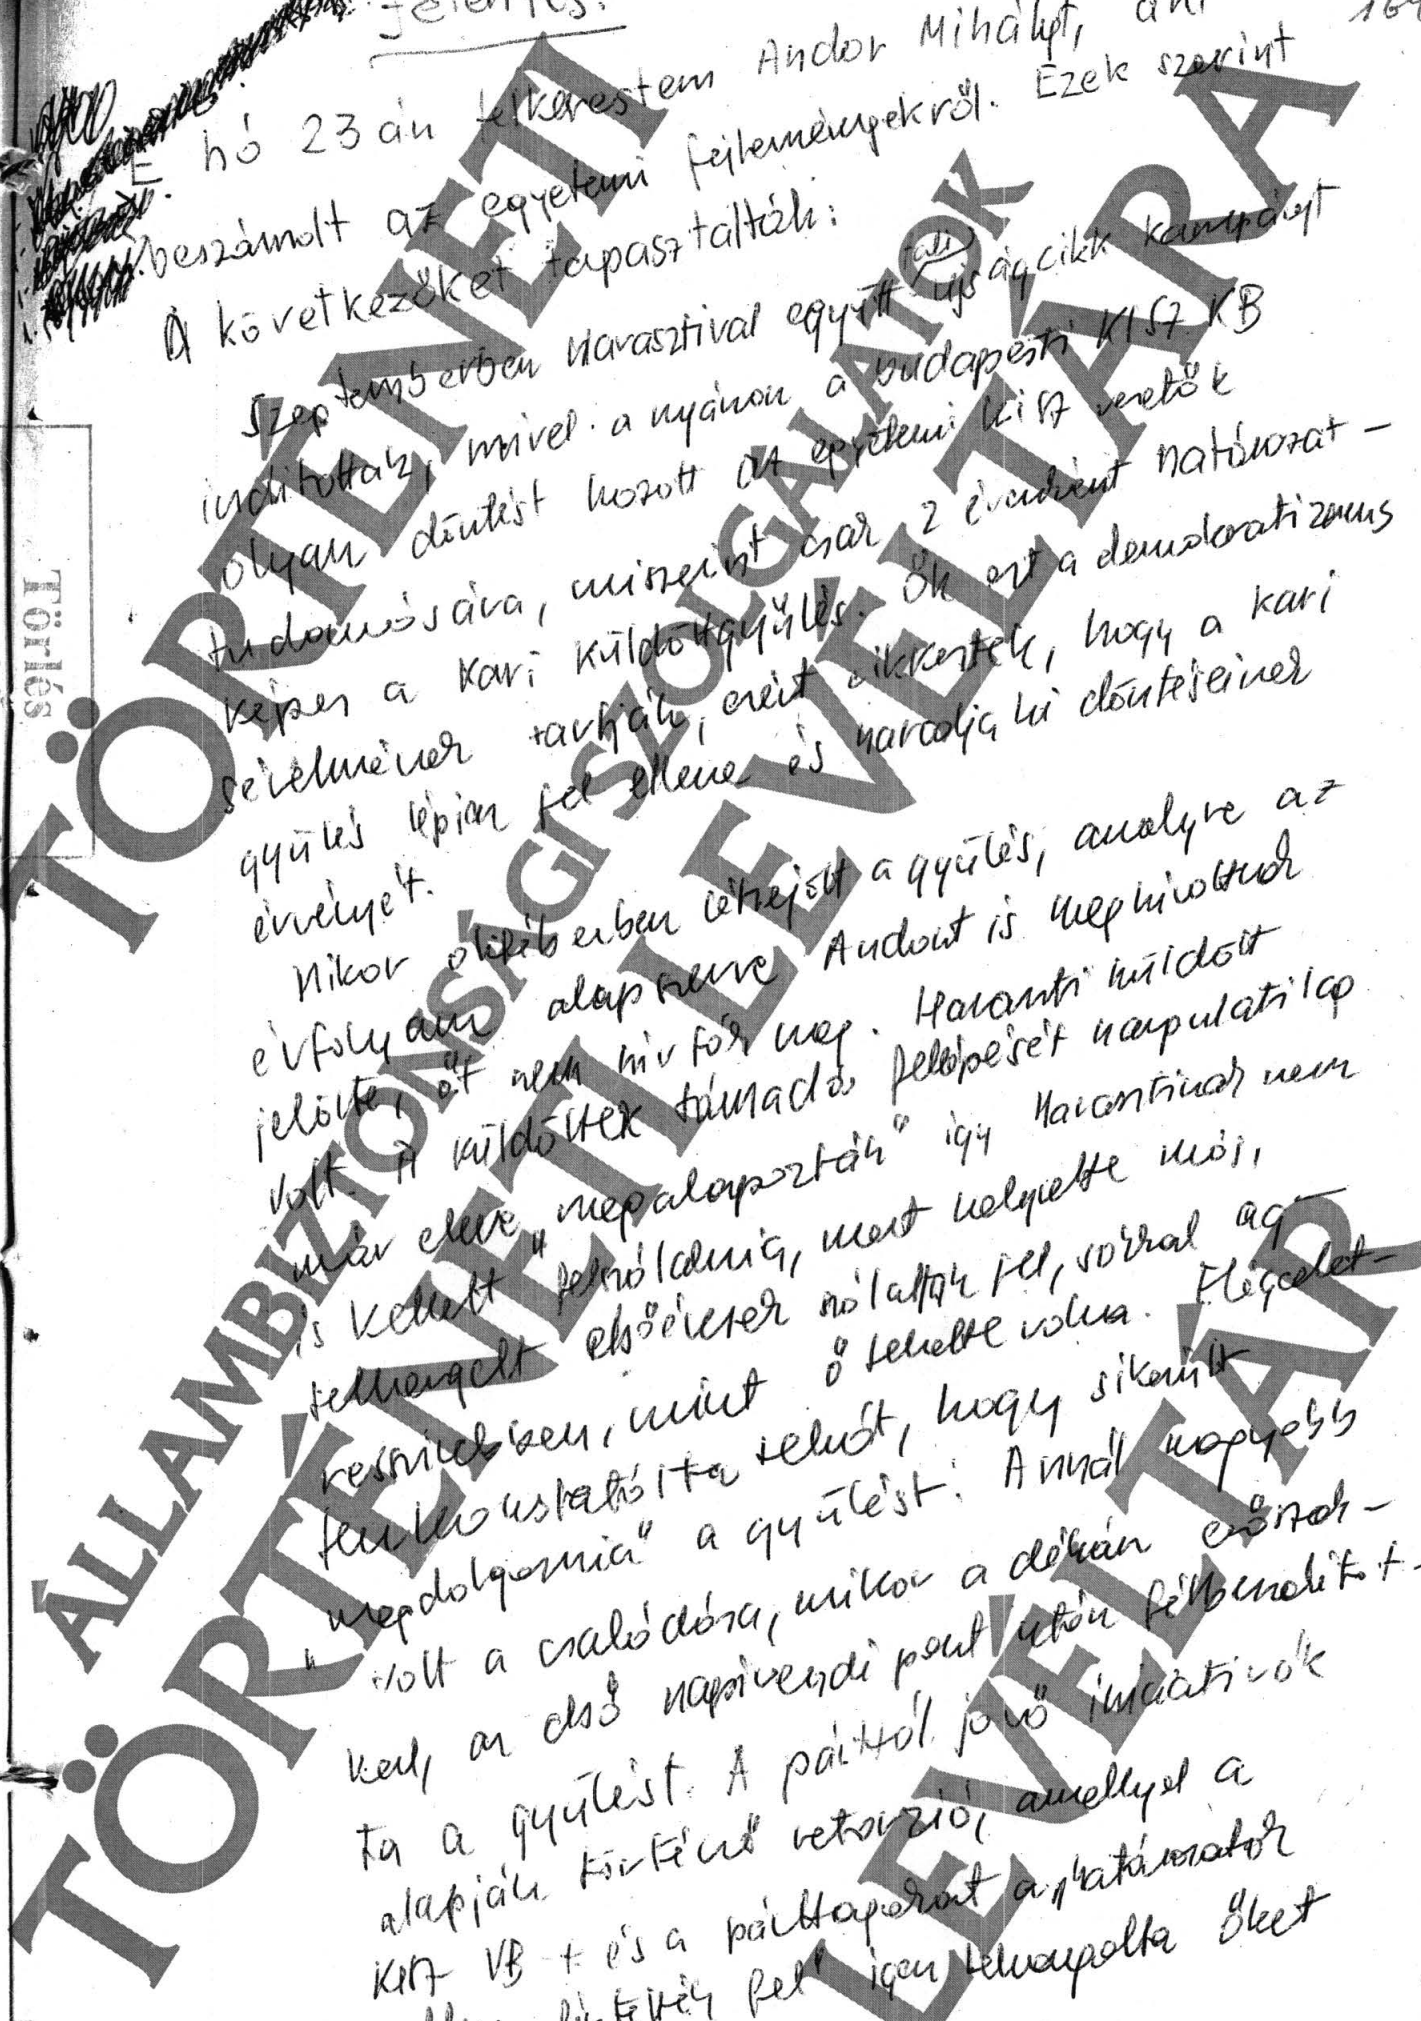 Jelentés.
164
É hó 23 án felkerestem Andor Mihályt, aki
beszámolt az egyetemi fejleményekről. Ezek szerint
A következőket tapasztalták:
Szeptemberben Harasztival együtt fali újságcikk kampányt
indítottak, mivel a nyáron a budapesti KISZ KB
olyan döntést hozott az egyetemi KISZ vezetők
tudomására, miszerint csak 2 évenként határozat-
képes a kari küldöttgyűlés. Ők ezt a demokratizmus
sérelmének tartják, ezért cikkeztek, hogy a kari
gyűlés lépjen fel ellene és harcolja ki döntéseinek
érvényét.
Mikor októberben létrejött a gyűlés, amelyre az
évfolyam alapszerve Andort is meghívottnak
jelölte, őt nem hívták meg. Haraszti küldött
volt. A küldöttek támadó fellépését hangulatilag
már eleve „megalapozták" így Harasztinak nem
is kellett felszólalnia, mert helyette más,
felhangolt elsőévesek szólaltak fel, sokkal ag-
resszívebben, mint ő tehette volna. Elégedet-
ten konstatálta tehát, hogy sikerült
„megdolgoznia" a gyűlést. Annál nagyobb
volt a csalódása, mikor a dékán erőszak-
kal, az első napirendi pont után félbeszakítot-
ta a gyűlést. A párttól jövő iniciatívák
alapján történő retorzió, amellyel a
KISZ VB-t és a párttagokat a „határozatok
fel" igen felhangolta őket
TÖRTÉNETI LEVÉLTÁRA
ÁLLAMBIZTONSÁGI SZOLGÁLATOK
TÖRTÉNETI LEVÉLTÁRA
TÖRTÉNETI LEVÉLTÁR
LEVÉLTÁR
Törlés